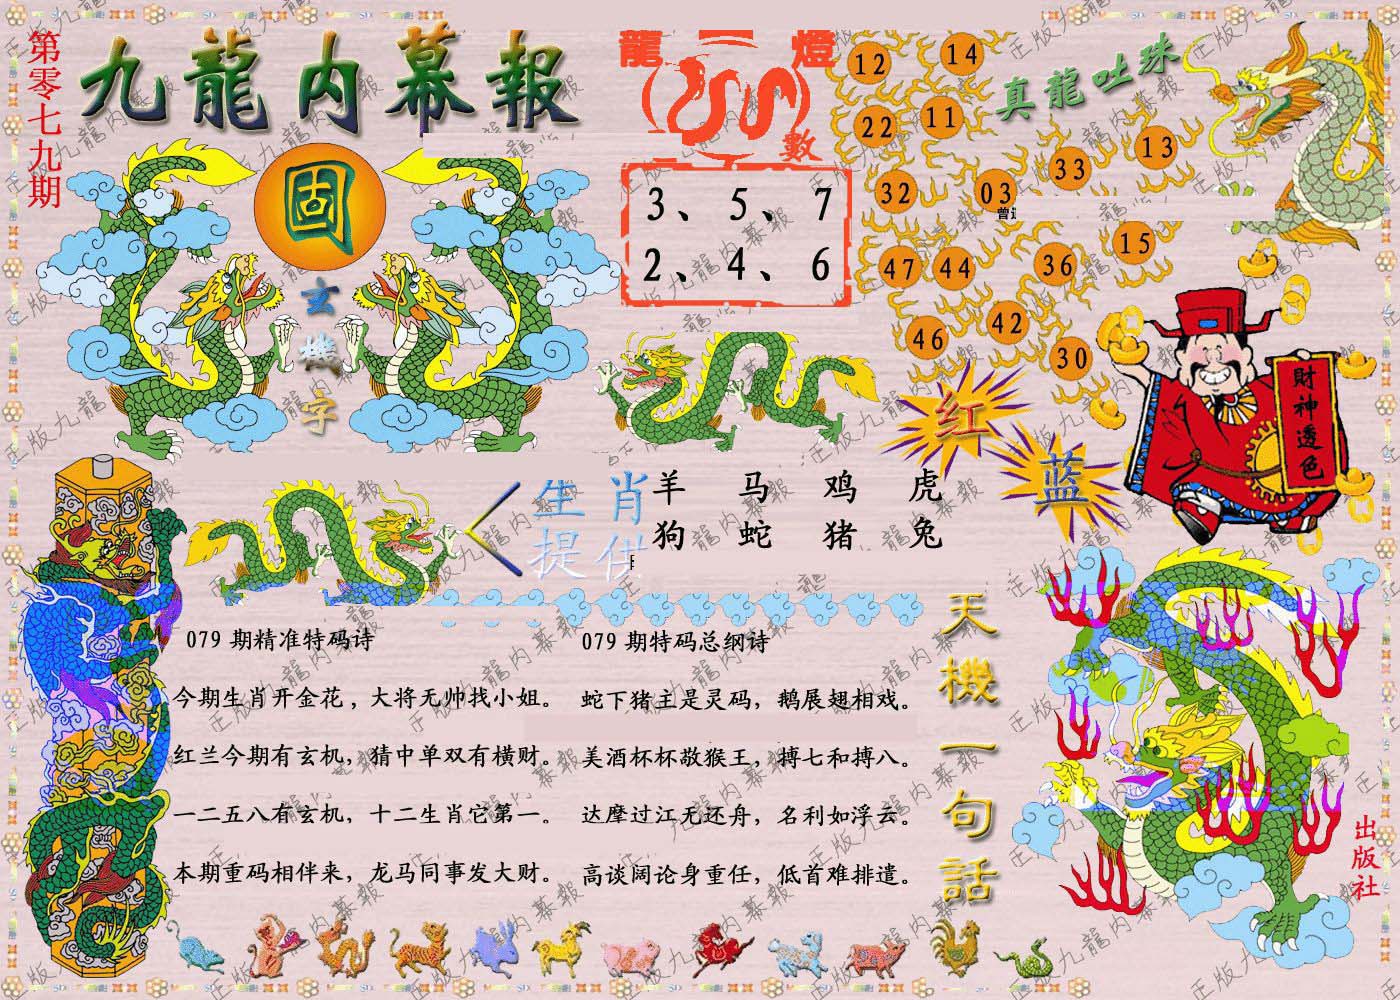 第零七九期
九龍内幕報
固
玄機字
龍燈
數
3、5、7
2、4、6
真龍吐珠
12
14
22
11
33
13
32
03
47
44
36
15
46
42
30
财神透色
红
蓝
生肖
提供
羊 马 鸡 虎
狗 蛇 猪 兔
079 期精准特码诗
今期生肖开金花，大将无帅找小姐。
红兰今期有玄机，猜中单双有横财。
一二五八有玄机，十二生肖它第一。
本期重码相伴来，龙马同事发大财。
079 期特码总纲诗
蛇下猪主是灵码，鹅展翅相戏。
美酒杯杯敬猴王，搏七和搏八。
达摩过江无还舟，名利如浮云。
高谈阔论身重任，低首难排遣。
天機一句話
出版社
正版九龍内幕報